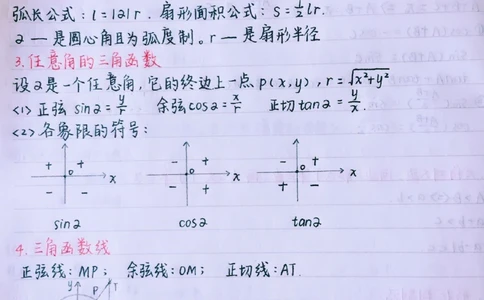 弧长公式：l=|α|r. 扇形面积公式：S=½lr.
α — 是圆心角且为弧度制。r — 是扇形半径
3.任意角的三角函数
设α是一个任意角，它的终边上一点P(x,y)，r=√x²+y²
<1>正弦 sinα=y/r 余弦cosα=x/r 正切tanα=y/x.
<2>各象限的符号：
+ + - + - +
o x o x o x
- - - + + -
sinα cosα tanα
4.三角函数线
正弦线：MP； 余弦线：OM； 正切线：AT.
y P T